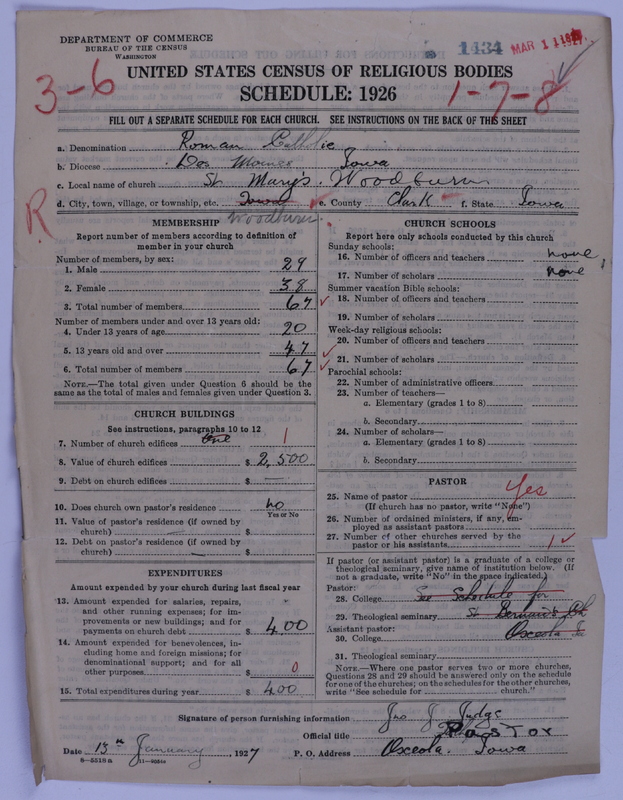 DEPARTMENT OF COMMERCE
BUREAU OF THE CENSUS
WASHINGTON
1434 MAR 11 1927
3-6
1-7-8
UNITED STATES CENSUS OF RELIGIOUS BODIES
SCHEDULE: 1926
FILL OUT A SEPARATE SCHEDULE FOR EACH CHURCH. SEE INSTRUCTIONS ON THE BACK OF THIS SHEET
a. Denomination Roman Catholic
b. Diocese Des Moines Iowa
c. Local name of church St Mary's. Woodburn
d. City, town, village, or township, etc. Iowa e. County Clark f. State Iowa
Woodburn
R
MEMBERSHIP
Report number of members according to definition of
member in your church
Number of members, by sex:
1. Male 29
2. Female 38
3. Total number of members 67
Number of members under and over 13 years old:
4. Under 13 years of age 20
5. 13 years old and over 47
6. Total number of members 67
NOTE.—The total given under Question 6 should be the
same as the total of males and females given under Question 3.
CHURCH BUILDINGS
See instructions, paragraphs 10 to 12
7. Number of church edifices one 1
8. Value of church edifices $ 2,500
9. Debt on church edifices $ —
10. Does church own pastor's residence no
Yes or No
11. Value of pastor's residence (if owned by
church) — $
12. Debt on pastor's residence (if owned by
church) — $
EXPENDITURES
Amount expended by your church during last fiscal year
13. Amount expended for salaries, repairs,
and other running expenses; for im-
provements or new buildings; and for
payments on church debt $ 400
14. Amount expended for benevolences, in-
cluding home and foreign missions; for
denominational support; and for all
other purposes $ 0
15. Total expenditures during year $ 400
CHURCH SCHOOLS
Report here only schools conducted by this church
Sunday schools:
16. Number of officers and teachers none
17. Number of scholars none
Summer vacation Bible schools:
18. Number of officers and teachers
19. Number of scholars
Week-day religious schools:
20. Number of officers and teachers
21. Number of scholars
Parochial schools:
22. Number of administrative officers
23. Number of teachers—
a. Elementary (grades 1 to 8)
b. Secondary
24. Number of scholars—
a. Elementary (grades 1 to 8)
b. Secondary
PASTOR
25. Name of pastor Yes
(If church has no pastor, write "None")
26. Number of ordained ministers, if any, em-
ployed as assistant pastors
27. Number of other churches served by the
pastor or his assistants 1
If pastor (or assistant pastor) is a graduate of a college or
theological seminary, give name of institution below. (If
not a graduate, write "No" in the space indicated.)
Pastor:
28. College See Schedule for
29. Theological seminary St Bernard's
Assistant pastor:
30. College Osceola
31. Theological seminary
NOTE.—Where one pastor serves two or more churches,
Questions 28 and 29 should be answered only on the schedule
for one of the churches; on the schedules for the other churches,
write "See schedule for church."
Signature of person furnishing information Jno J Judge
Official title Pastor
Date 13th January, 1927 P. O. Address Osceola. Iowa
8-5518a 11-9